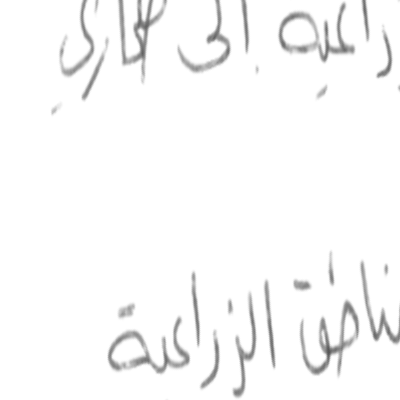 راعية إلى صحاري
ناطق الزراعية